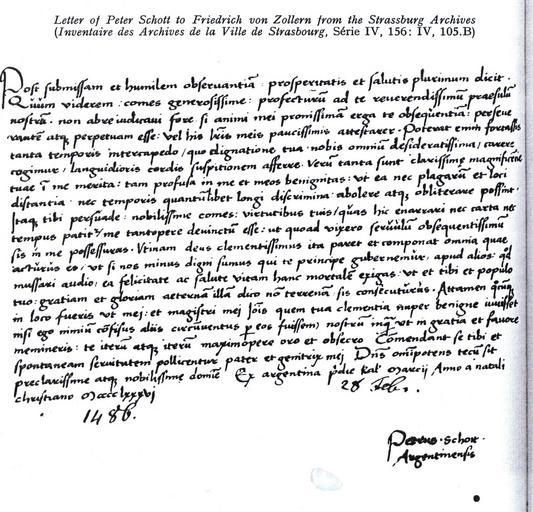 Letter of Peter Schott to Friedrich von Zollern from the Strassburg Archives
(Inventaire des Archives de la Ville de Strasbourg, Série IV, 156: IV, 105.B)
Post submissam et humilem observantiā prosperitatis et salutis plurimum dicit.
Quum viderem: comes generosissime: profecturū ad te reverendissimū praesulē
nostrū: non abre iudicavi fore si animi mei pronissimā erga te obsequentiā: perseve
rantē atq perpetuam esse: vel his lr̄is meis paucissimis attestarer. Poterat enim fortassis
tanta temporis intercapedo / quo dignatione tua nobis omniū desideratissima / carere
cogimur / languidioris cordis suspitionem afferre. Verū tanta sunt clarissime magnificētie
tuae ī me merita: tam profusa in me et meos benignitas: ut ea nec plagarū et loci
distantia: nec temporis quantūlibet longi discrimina: abolere atq obliterare possint.
Itaq tibi persuade: nobilissime comes: virtutibus tuis / quas hic enarrari nec carta nec
tempus patit / me tantopere devinctū esse: ut quoad vixero servulū obsequentissimū
sis in me possessurus. Utinam deus clementissimus ita paret et componat omnia quae
acturus es / ut si nos minus digni sumus qui te principe gubernemur, apud alios: qd
mussari audio, ea felicitate ac salute vitam hanc mortalē exigas: ut et tibi et populo
tuo: gratiam et gloriam aeternā illā duo nō terrenā: sis consecuturus. Attamen
in loco fueris ut mei: et magistri mei Joīs quem tua clementia nuper benigne
nisi ego nimiū cōfisus aliis circuventus p eos fuissem) nostrū inq ut in gratia et favore
memineris: te iterū atq iterū maximopere oro et obsecro. Comendant se tibi et
spontaneam servitutem pollicentur pater et genitrix mei. Dn̄s omīpotens tecū sit
preclarissime atq nobilissime domīe. Ex argentina p̄die kal Marcij Anno a natali
christiano Mcccclxxxvi
28 Feb.
1486.
Petrus Schott
Argentinensis